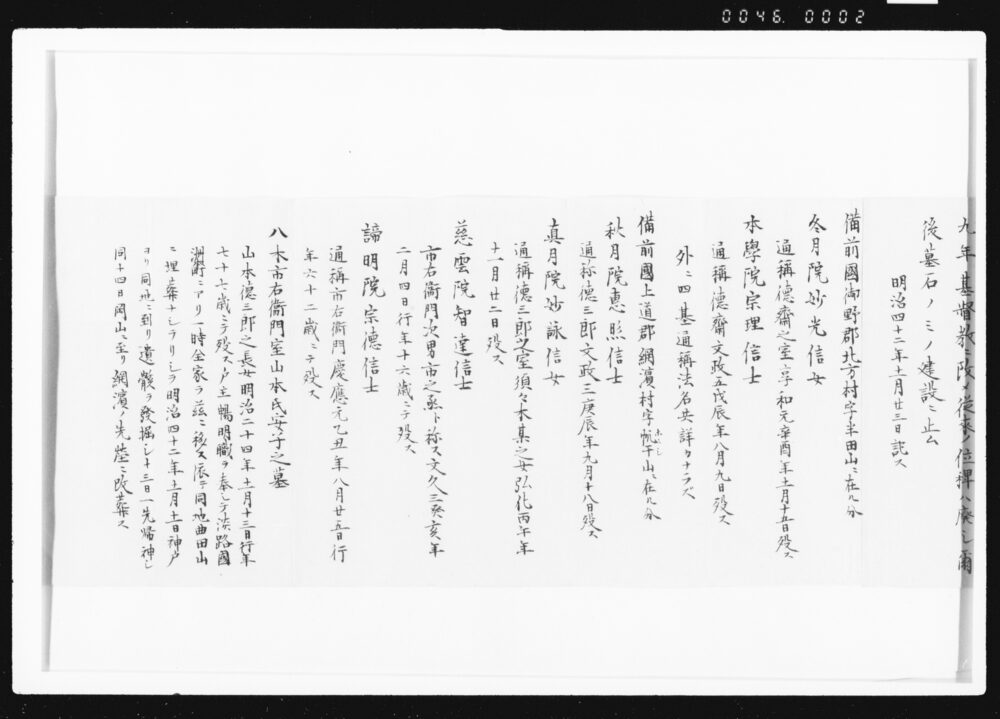 0046. 0002
九年基督教ニ改メ従来ノ位牌ハ廃シ爾
後墓石ノミノ建設ニ止ム
明治四十二年十一月廿三日記ス
備前國御野郡北方村字半田山ニ在ル分
冬月院妙光信女
通稱德齋之室享和元辛酉年十一月十五日歿ス
本學院宗理信士
通稱德齋文政五戊辰年八月九日歿ス
外ニ四基通稱法名共詳カナラズ
備前國上道郡網濱村字帆干山ニ在ル分
秋月院惠照信士
通称德三郎文政三庚辰年九月十八日歿ス
真月院妙詠信女
通稱德三郎之室須々木某之女弘化丙午年
十一月廿二日歿ス
慈雲院智達信士
市右衛門次男市之丞ト称ス文久三癸亥年
二月四日行年十六歳ニテ歿ス
諦明院宗德信士
通稱市右衛門慶應元乙丑年八月廿五日行
年六十二歳ニテ歿ス
八木市右衛門室山本氏安子之墓
山本德三郎之長女明治二十四年十月十三日行年
七十六歳ニテ歿ス戸主暢明職ヲ奉シテ淡路國
洲本町ニアリ一時全家ヲ茲ニ移ス依テ同地曲田山
ニ埋葬ナシタリシヲ明治四十二年十一月十一日神戸
ヨリ同地ニ到リ遺骸ヲ發掘シ十三日一先帰神シ
同十四日岡山ニ至リ網濱ノ先塋ニ改葬ス